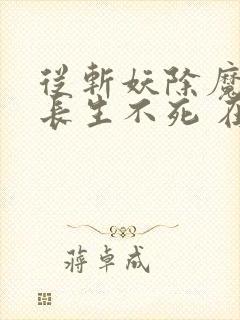 從斬妖除魔
長生不死 在
蔣卓成